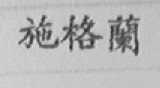 施格蘭